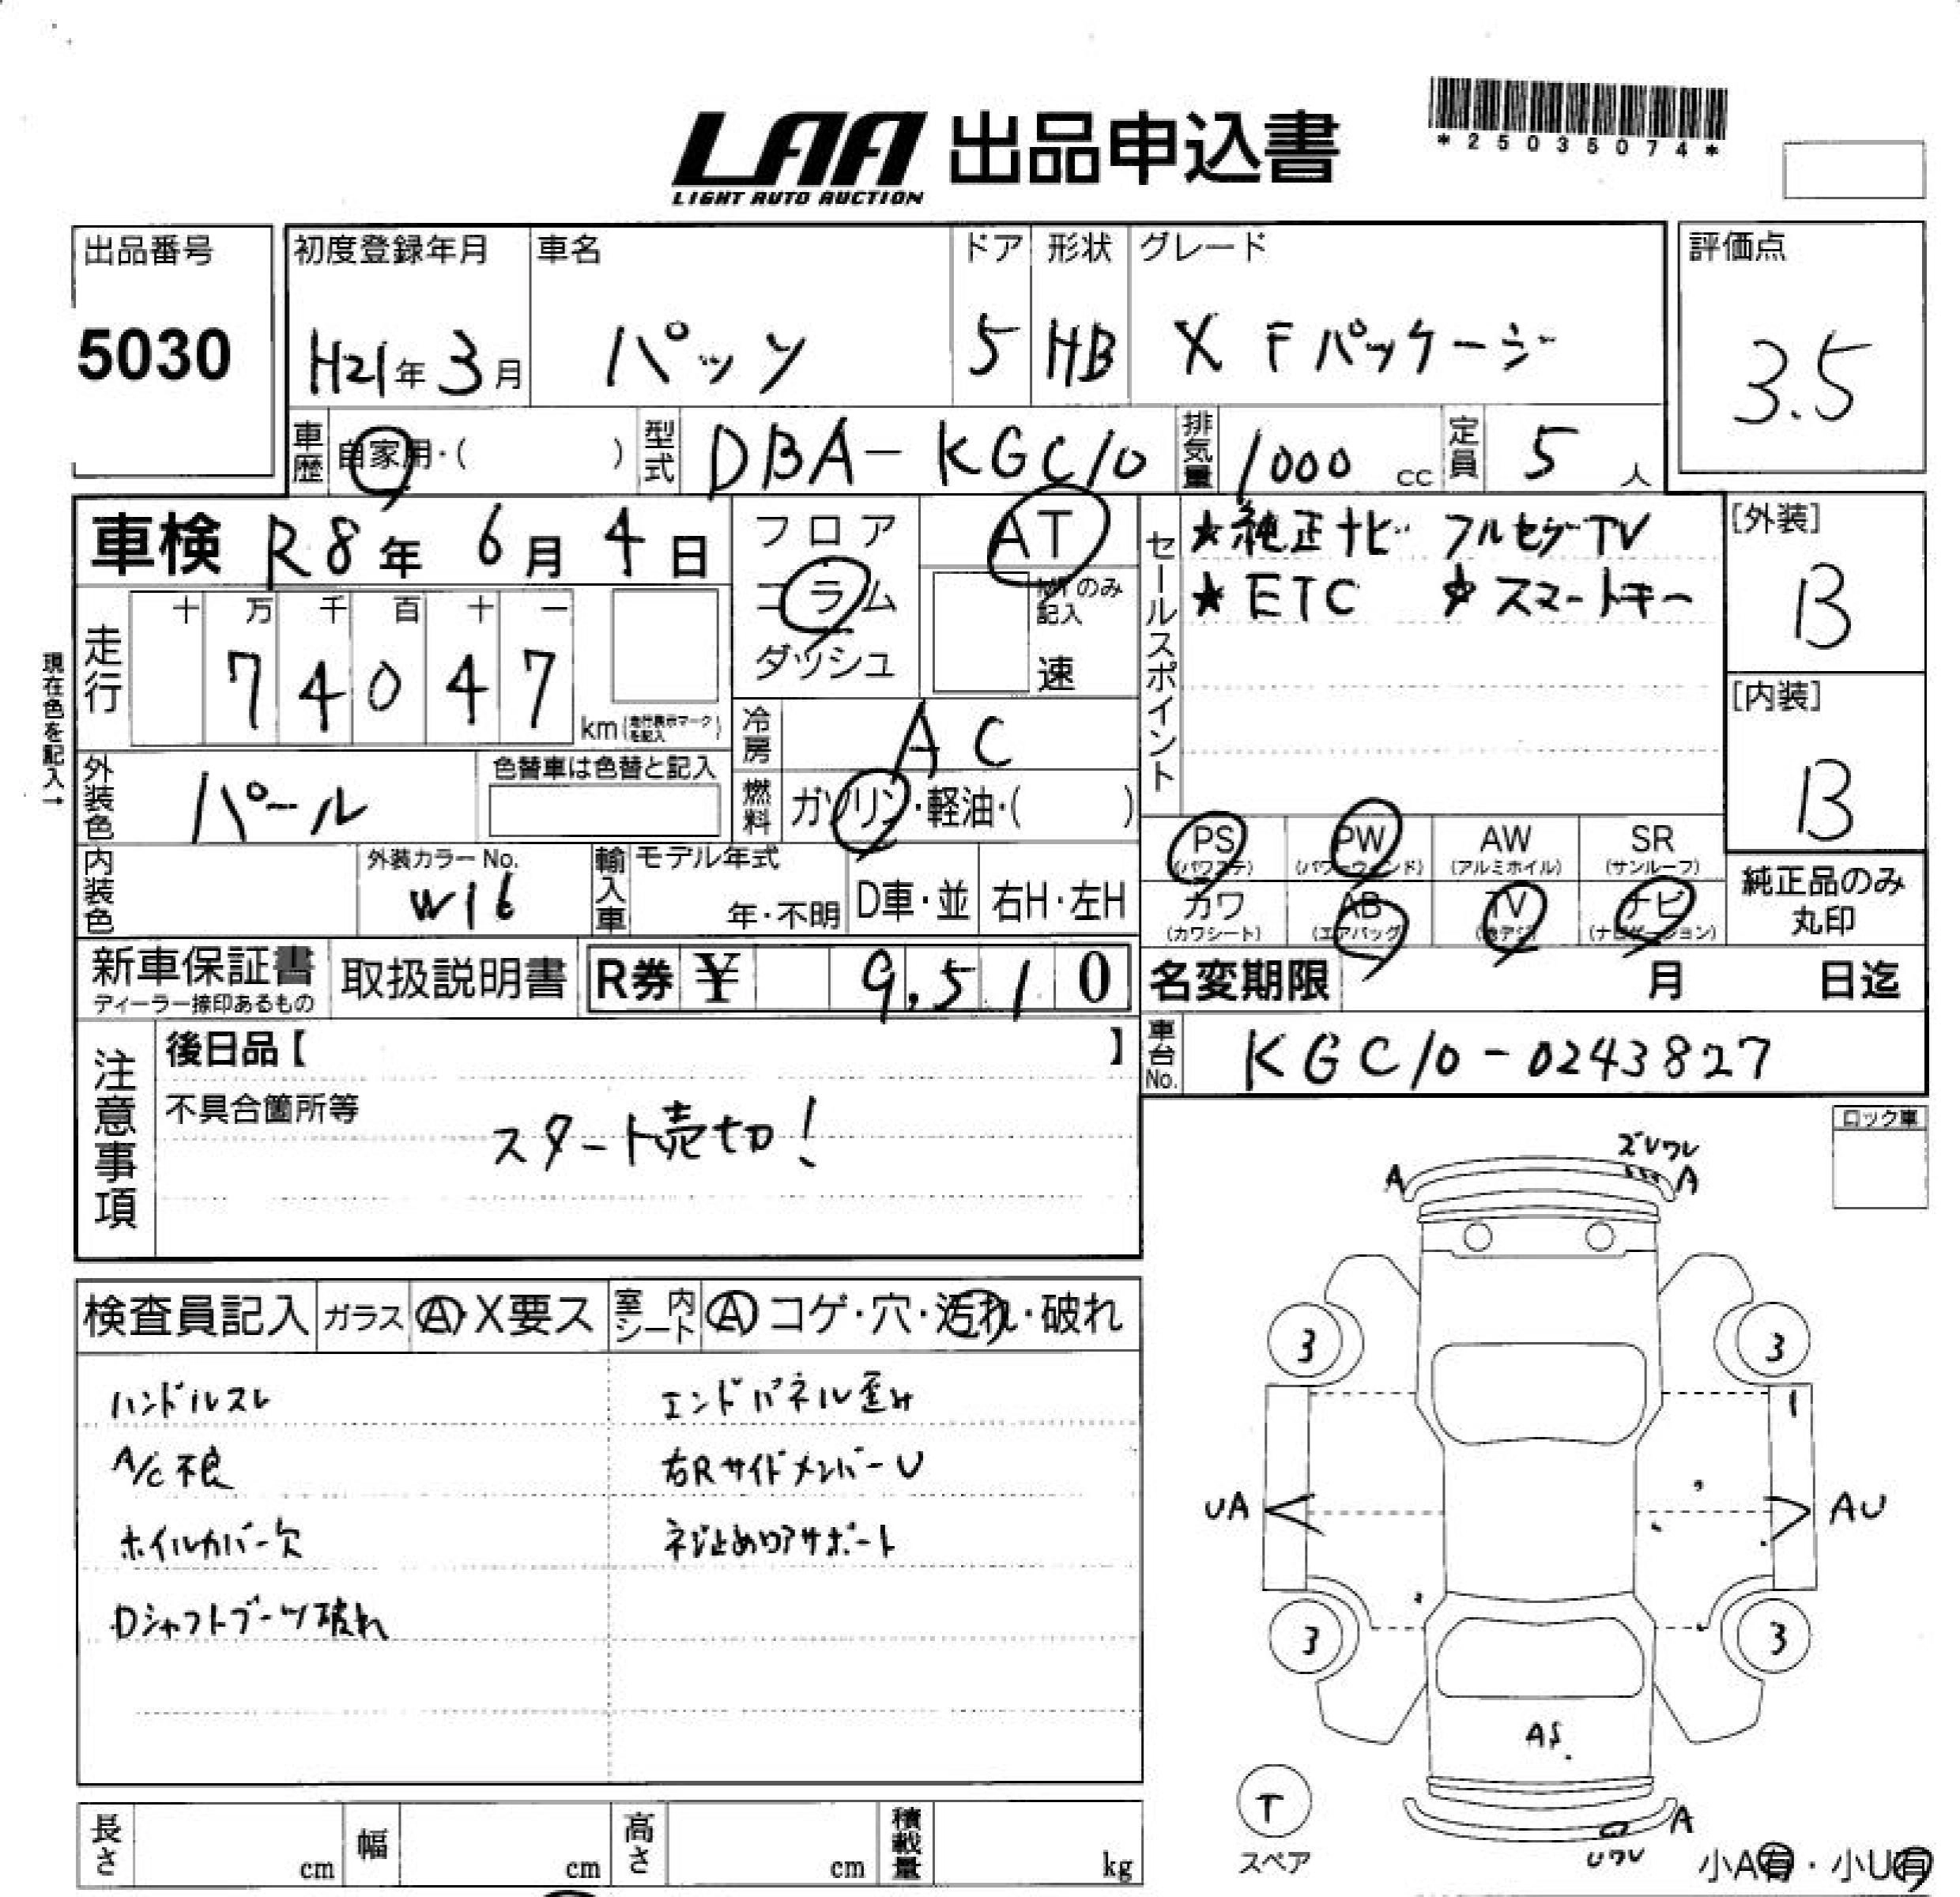 LAA 出品申込書
LIGHT AUTO AUCTION
*25035074*
出品番号
5030
初度登録年月
H21年 3月
車名
パッソ
ドア
5
形状
HB
グレード
X Fパッケージ
評価点
3.5
車歴 自家用・( )
型式 DBA-KGC10
排気量 1000 cc
定員 5 人
車検 R8年 6月 4日
フロア
コラム
ダッシュ
AT
MTのみ記入
速
セールスポイント
★純正ナビ フルセグTV
★ETC ★スマートキー
[外装]
B
[内装]
B
現在色を記入→
走行
十 万 千 百 十 一
7 4 0 4 7
km (走行表示マークを記入)
冷房 AC
外装色 パール
色替車は色替と記入
燃料 ガソリン・軽油・( )
内装色
外装カラーNo.
W16
輸入車
モデル年式
年・不明
D車・並
右H・左H
PS (パワステ)
PW (パワーウィンド)
AW (アルミホイル)
SR (サンルーフ)
カワ (カワシート)
AB (エアバッグ)
TV (地デジ)
ナビ (ナビゲーション)
純正品のみ
丸印
新車保証書
ディーラー捺印あるもの
取扱説明書
R券 ¥ 9,510
名変期限 月 日迄
車台No. KGC10-0243827
注意事項
後日品【 】
不具合箇所等
スタート売切!
ロック車
検査員記入
ガラス A・X要ス
室内シート A コゲ・穴・汚れ・破れ
ハンドルスレ
A/C不良
ホイルカバー欠
Dシャフトブーツ破れ
エンドパネル歪み
右RサイドメンバーU
ネジ止めロアサポート
ズレワレ
A
A
3
3
1
UA
AU
3
3
AS
T
スペア
A
Uワレ
小A有・小U有
長さ cm
幅 cm
高さ cm
積載量 kg